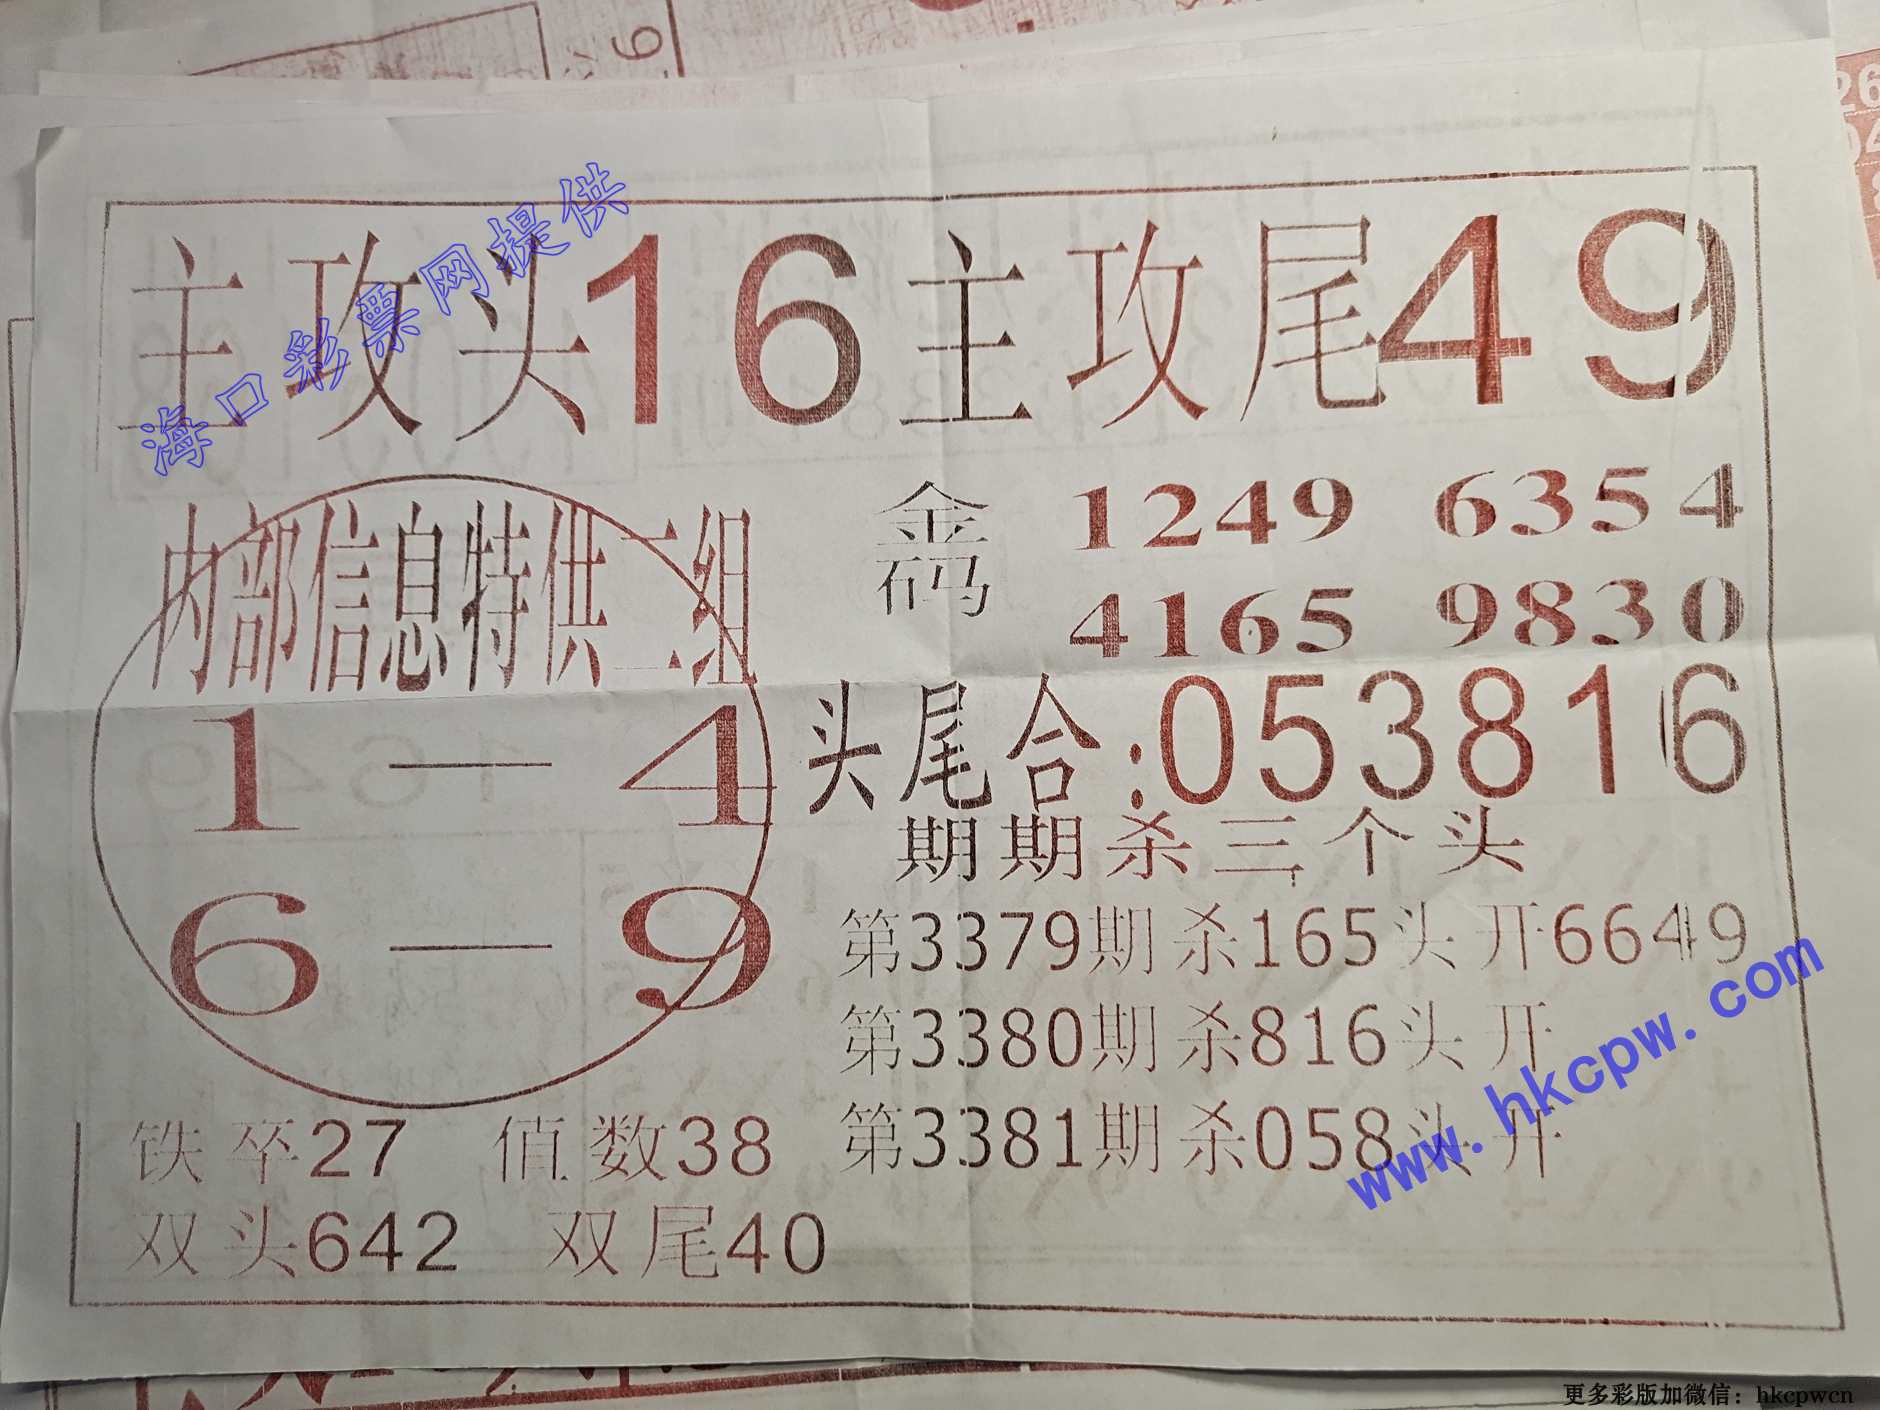 主攻头16主攻尾49
海口彩票网提供
内部信息特供二组
1—4
6—9
金码 1249 6354
4165 9830
头尾合:053816
期期杀三个头
第3379期杀165头开6649
第3380期杀816头开
第3381期杀058头开
铁卒27 值数38
双头642 双尾40
www.hkcpw.com
更多彩版加微信：hkcpwcn